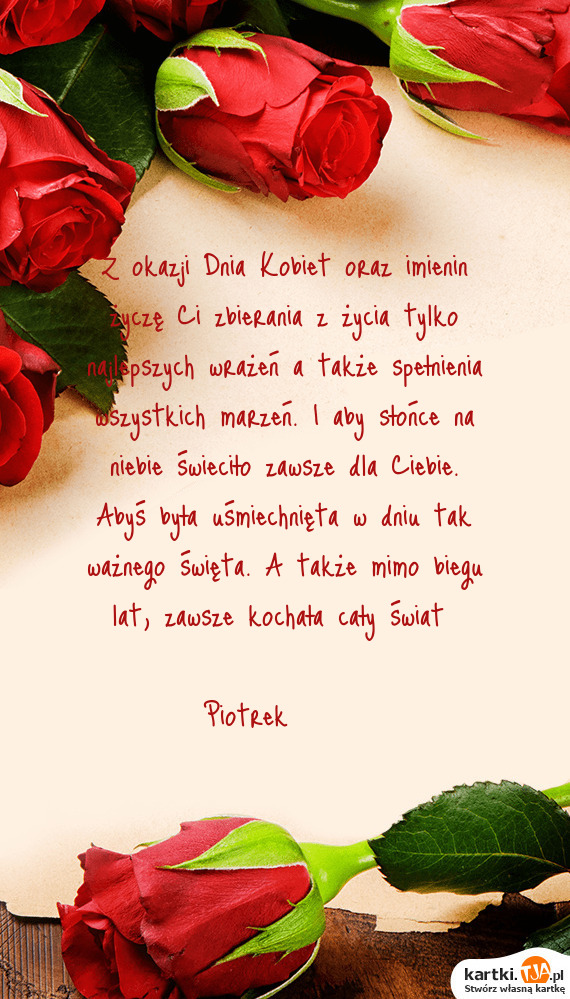 Z okazji Dnia Kobiet oraz imienin
życzę Ci zbierania z życia tylko
najlepszych wrażeń a także spełnienia
wszystkich marzeń. I aby słońce na
niebie świeciło zawsze dla Ciebie.
Abyś była uśmiechnięta w dniu tak
ważnego święta. A także mimo biegu
lat, zawsze kochała cały świat
Piotrek
kartki.TJA.pl
Stwórz własną kartkę